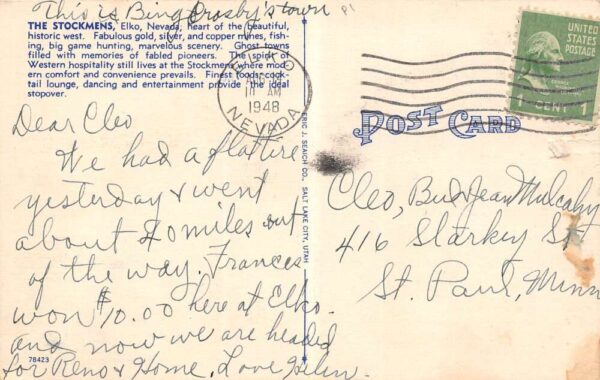 This is Bing Crosby's town
THE STOCKMENS, Elko, Nevada, heart of the beautiful,
historic west. Fabulous gold, silver, and copper mines, fish-
ing, big game hunting, marvelous scenery. Ghost towns
filled with memories of fabled pioneers. The spirit of
Western hospitality still lives at the Stockmens where mod-
ern comfort and convenience prevails. Finest foods, cock-
tail lounge, dancing and entertainment provide the ideal
stopover.
Dear Cleo
We had a flat tire
yesterday & went
about 40 miles out
of the way. Frances
won $10.00 here at Elko.
and now we are headed
for Reno & Home. Love Helen.
78423
ERIC J. SEAICH CO., SALT LAKE CITY, UTAH
ELKO
11 AM
1948
NEVADA
POST CARD
UNITED
STATES
POSTAGE
1 CENT 1
Cleo, Bud & Jean Mulcahy
416 Starkey St
St. Paul, Minn